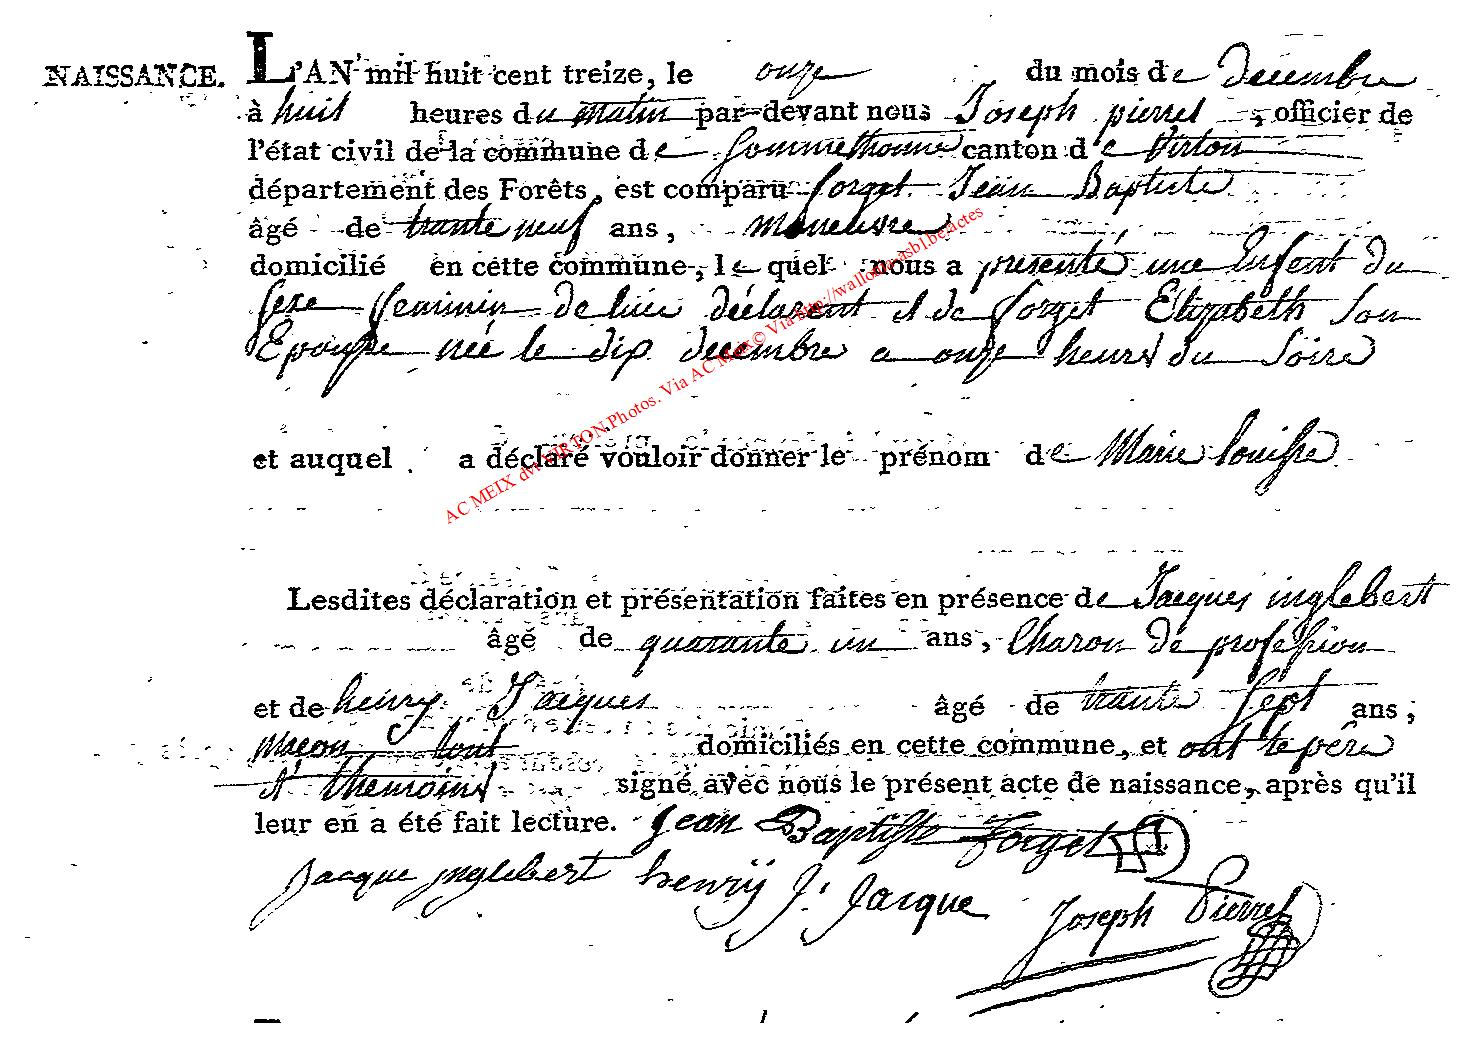 NAISSANCE. L'AN mil huit cent treize, le onze du mois de decembre
à huit heures du matin par-devant nous Joseph pierret, officier de
l'état civil de la commune de Sommethonne canton de Virton
département des Forêts, est comparu forget Jean Baptiste
âgé de trante neuf ans, maneuvre
domicilié en cette commune, le quel nous a presenté une Enfent du
sexe feminin de lui déclarent et de forget Elizabeth Son
Epousse née le dix decembre a onze heures du Soire
et auquel a déclaré vouloir donner le prénom de Marie louisse
Lesdites déclaration et présentation faites en présence de Jacques inglebert
âgé de quarante un ans, Charon de profession
et de henry Jacques âgé de trante Sept ans,
Macon tout domiciliés en cette commune, et ont le pére
et themoins signé avec nous le présent acte de naissance, après qu'il
leur en a été fait lecture. Jean Baptiste forget
Jacque jnglebert henry J. Jacque
Joseph Pierret
AC MEIX dvt VIRTON Photos. Via AC Meix© Via http://wallonia-asbl.be/actes